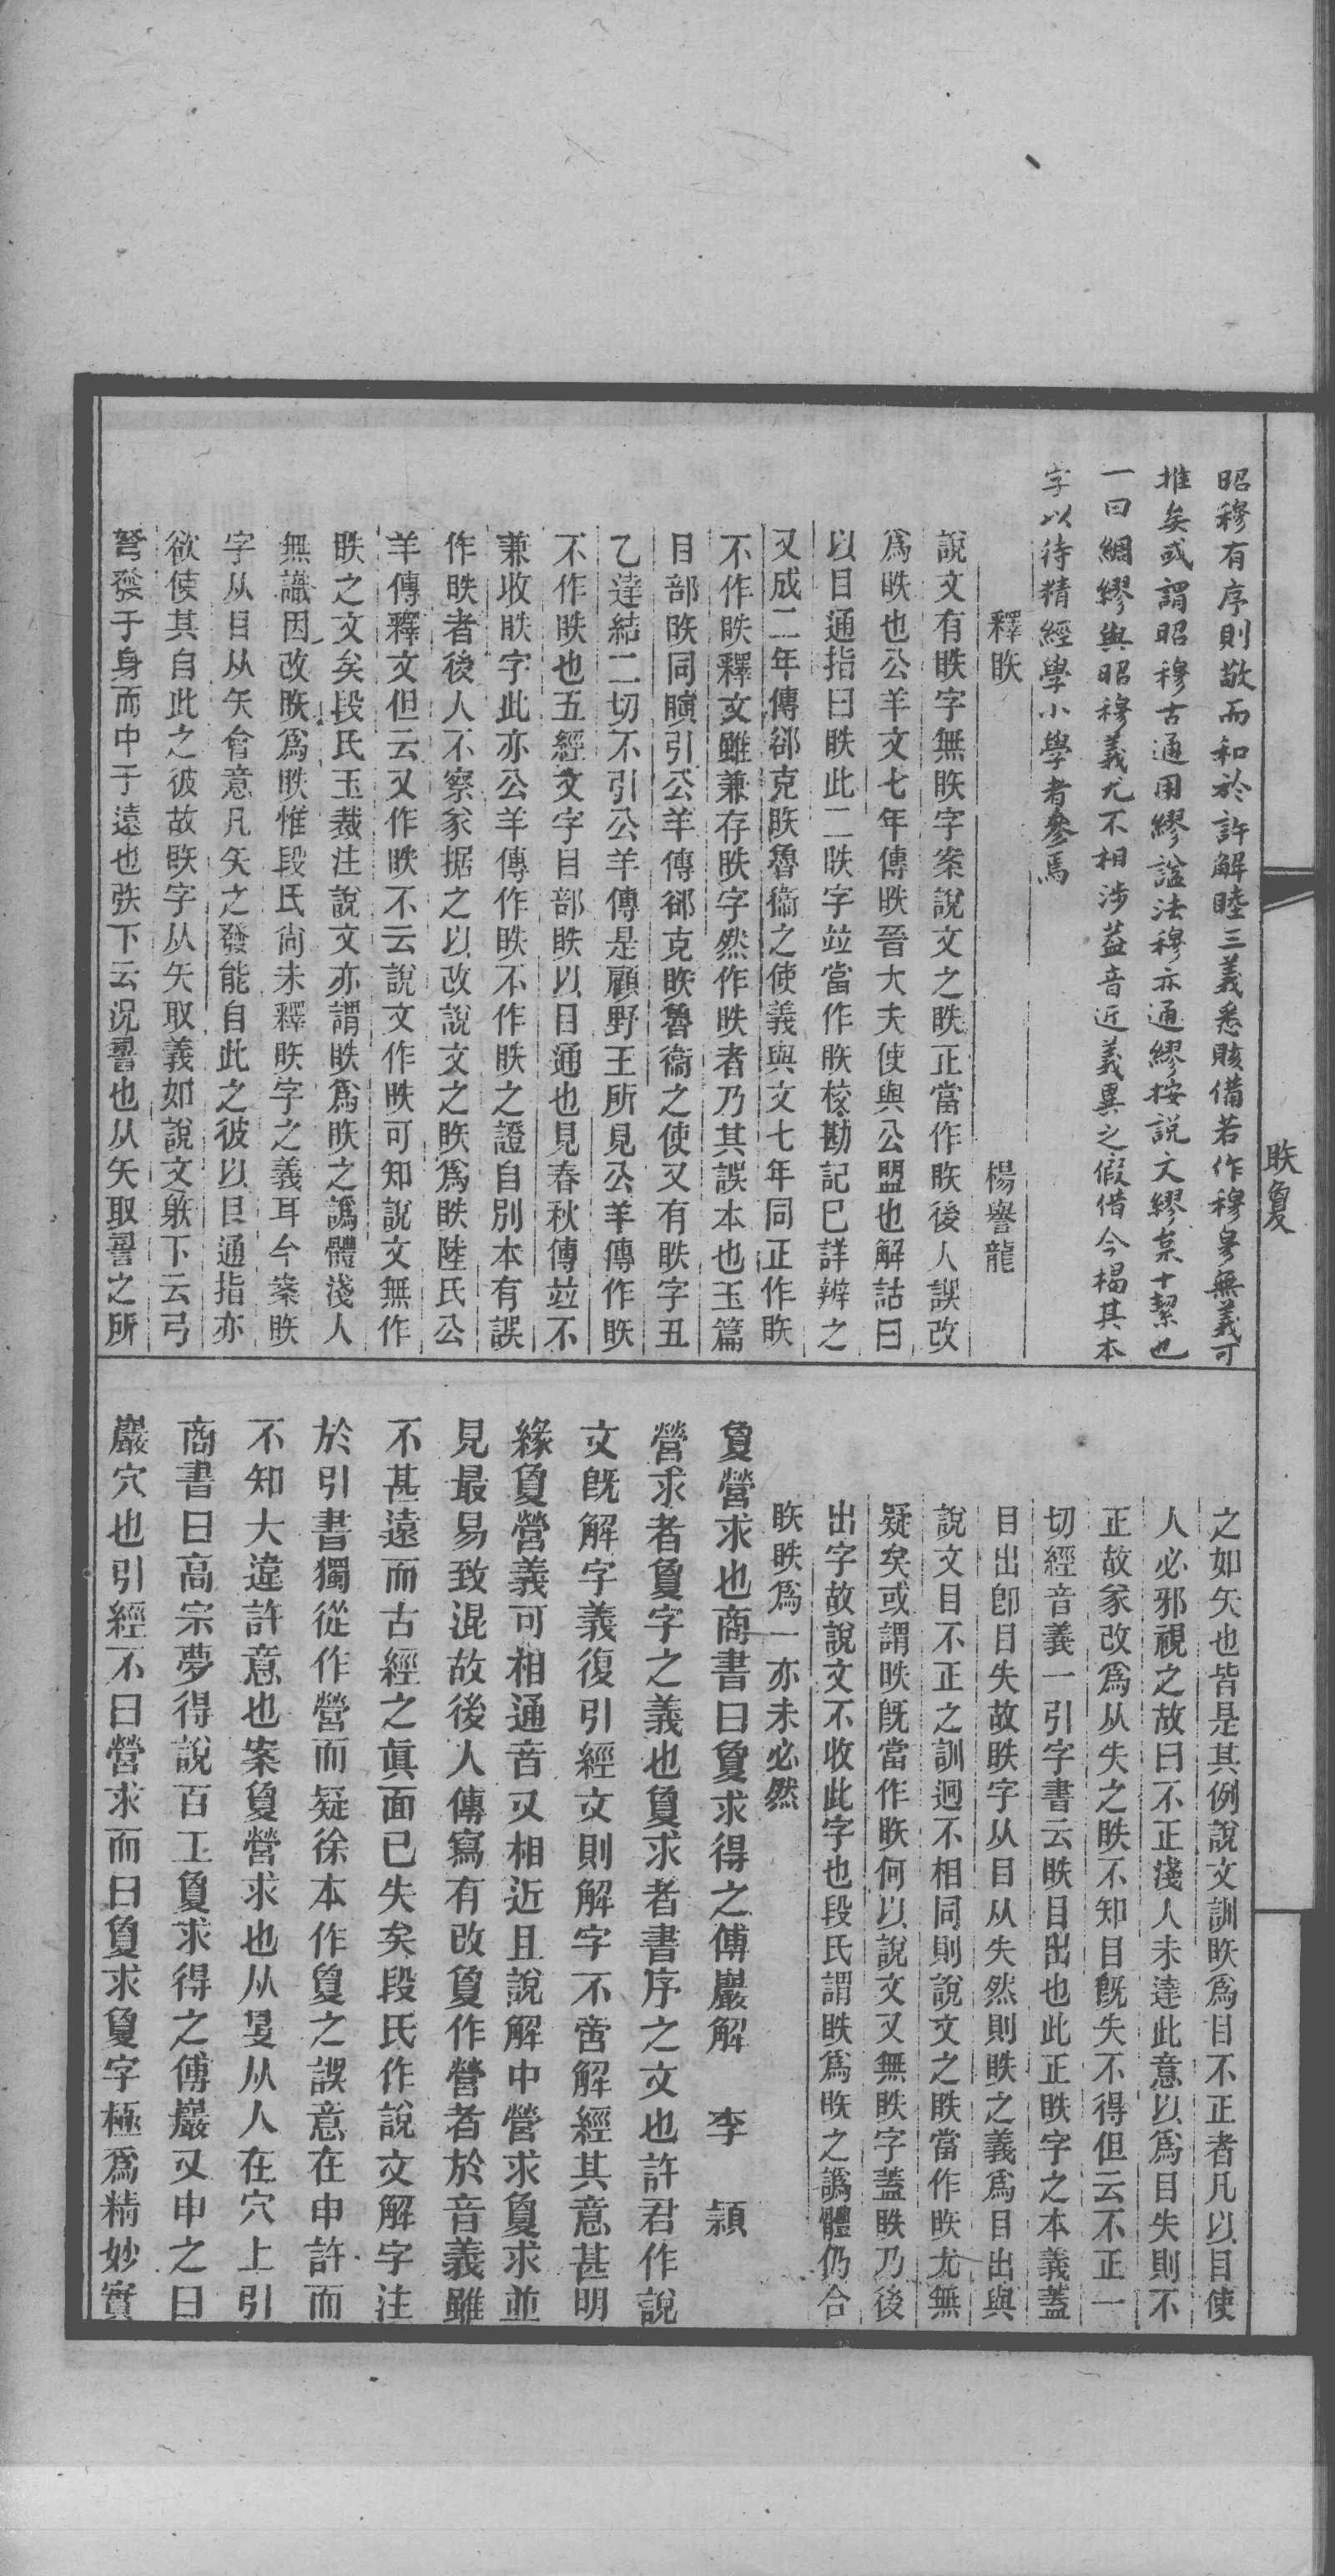 昭穆有序則敬而和於許解睦三義悉賅備若作穆㬥無義可
推矣或謂昭穆古通用繆謚法穆亦通繆按說文繆枲十絜也
一曰綢繆與昭穆義尤不相涉葢音近義異之假借今楬其本
字以待精經學小學者參焉
釋䀢 楊譽龍
說文有眣字無䀢字案說文之眣正當作䀢後人誤改
爲眣也公羊文七年傳眣晉大夫使與公盟也解詁曰
以目通指曰眣此二眣字竝當作䀢校勘記已詳辨之
又成二年傳郤克䀢魯衞之使義與文七年同正作䀢
不作眣釋文雖兼存眣字然作眣者乃其誤本也玉篇
目部䀢同瞚引公羊傳郤克䀢魯衞之使又有眣字丑
乙達結二切不引公羊傳是顧野王所見公羊傳作䀢
不作眣也五經文字目部䀢以目通也見春秋傳竝不
兼收眣字此亦公羊傳作䀢不作眣之證自別本有誤
作眣者後人不察家据之以改說文之䀢爲眣陸氏公
羊傳釋文但云又作眣不云說文作眣可知說文無作
眣之文矣段氏玉裁注說文亦謂眣爲䀢之譌體淺人
無識因改䀢爲眣惟段氏尙未釋䀢字之義耳今案䀢
字从目从矢會意凡矢之發能自此之彼以目通指亦
欲使其自此之彼故䀢字从矢取義如說文䠶下云弓
弩發于身而中于遠也矤下云況䛐也从矢取䛐之所
之如矢也皆是其例說文訓䀢爲目不正者凡以目使
人必邪視之故曰不正淺人未達此意以爲目失則不
正故家改爲从失之眣不知目旣失不得但云不正一
切經音義一引字書云眣目出也此正眣字之本義葢
目出卽目失故眣字从目从失然則眣之義爲目出與
說文目不正之訓迥不相同則說文之眣當作䀢尤無
疑矣或謂眣旣當作䀢何以說文又無眣字蓋眣乃後
出字故說文不收此字也段氏謂眣爲䀢之譌體仍合
䀢眣爲一亦未必然
夐營求也商書曰夐求得之傅巖解 李 穎
營求者夐字之義也夐求者書序之文也許君作說
文旣解字義復引經文則解字不啻解經其意甚明
緣夐營義可相通音又相近且說解中營求夐求並
見最易致混故後人傳寫有改夐作營者於音義雖
不甚遠而古經之眞面已失矣段氏作說文解字注
於引書獨從作營而疑徐本作夐之誤意在申許而
不知大違許意也案夐營求也从𡕥从人在穴上引
商書曰高宗夢得說百工夐求得之傅巖又申之曰
巖穴也引經不曰營求而曰夐求夐字極爲精妙實
䀢夐